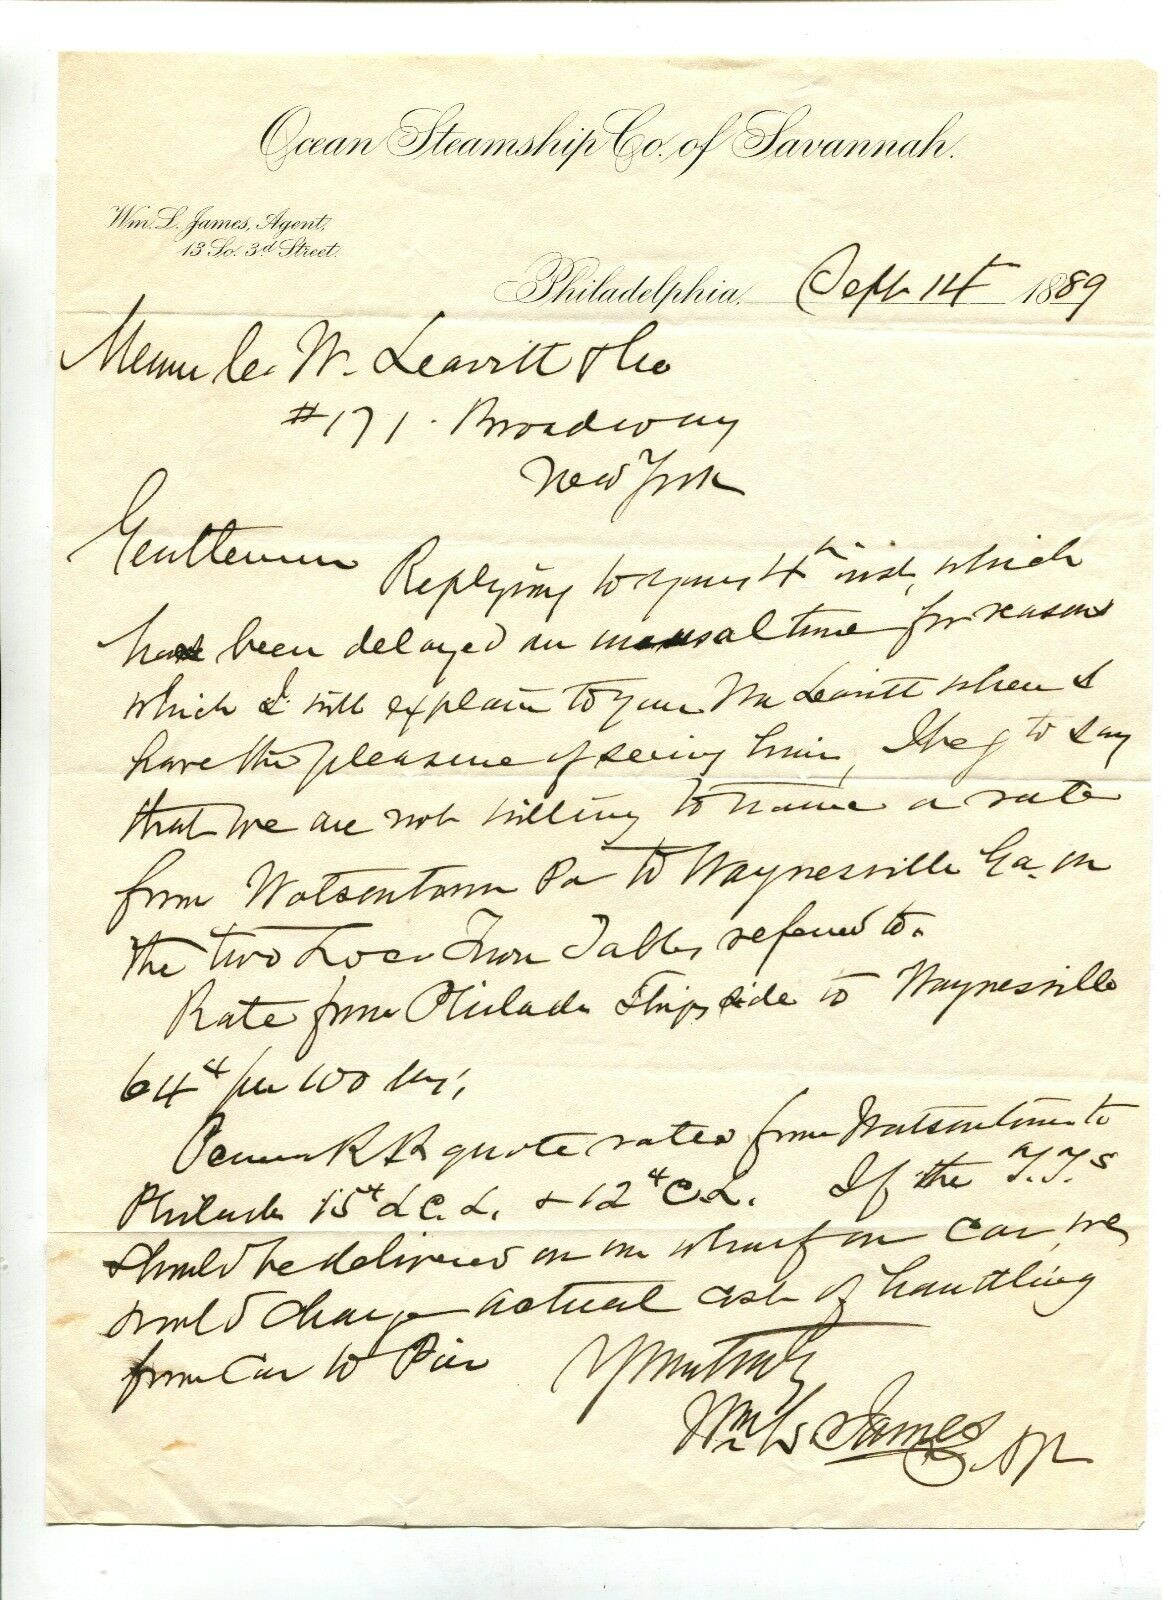 Ocean Steamship Co. of Savannah.
Wm. L. James, Agent,
13 So. 3d Street.
Philadelphia, Sept 14th 1889
Messrs Geo W. Leavitt & Co
#171. Broadway
New York
Gentlemen Replying to yours 4th inst, which
has been delayed an unusual time for reasons
which I will explain to your Mr Leavitt when I
have the pleasure of seeing him, I beg to say
that we are not willing to name a rate
from Watsontown Pa to Waynesville Ga. on
the two Loco Turn Tables referred to.
Rate from Philada Ship side to Waynesville
64¢ per 100 lbs,
Penna RR quote rates from Watsontown to
Philada 15¢ L.C.L. & 12¢ C.L. If the T.T.s
should be delivered on our wharf on car, we
would charge actual cost of handling
from Car to Pier
Yours truly
Wm L James